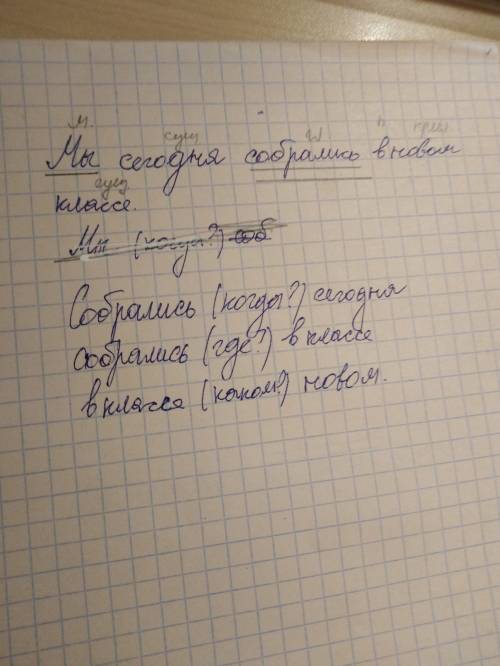 м. сущ гл п. прил
Мы сегодня собрались в новом
сущ
классе.
Мы (когда?) соб
Собрались (когда?) сегодня
собрались (где?) в классе
в классе (каком?) новом.